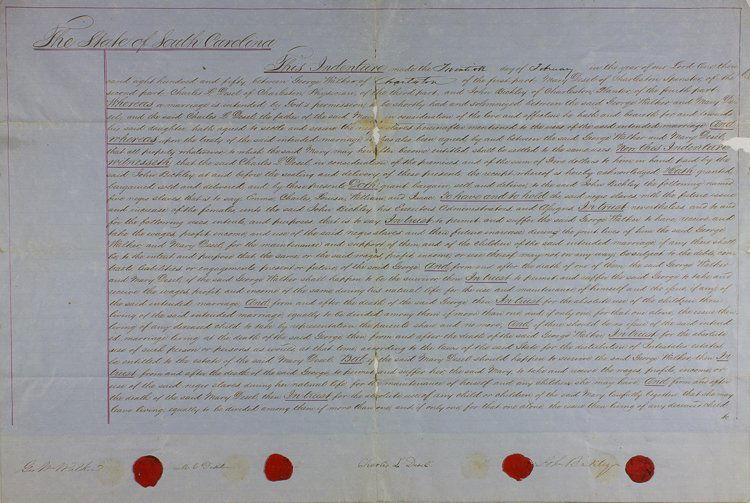 The State of South Carolina
This Indenture made the Twentieth day of February in the year of our Lord One thousand
and eight hundred and fifty between George Walker of Charleston of the first part Mary Desel of Charleston Spinster of the
second part, Charles L Desel of Charleston, Physician, of the third part, and John Bickley of Charleston Planter of the fourth part
Whereas a marriage is intended by God's permission to shortly had and solemnized between the said George Walker and Mary De
sel, and the said Charles L Desel the father of the said Mary in consideration of the love and affection he hath and beareth for and towards
his said daughter hath agreed to settle and assure the slaves hereinafter mentioned to the uses of the said intended marriage And
whereas upon the treaty of the said intended marriage it was also been agreed by and between the said George Walker and Mary Desel
that all property whatsoever to which the said Mary may be entitled shall be settled to the same uses Now this Indenture
witnesseth that the said Charles L Desel in consideration of the premises and of the sum of Five dollars to him in hand paid by the
said John Bickley at and before the sealing and delivery of these presents the receipt whereof is hereby acknowledged Hath granted
bargained sold and delivered and by these presents Doth grant bargain sell and deliver to the said John Bickley the following named
five negro slaves that is to say, Emma, Charles, Louisa, William and Isaac To have and to hold the said negro slaves with the future issue
and increase of the females unto the said John Bickley his Executors Administrators and Assigns In trust nevertheless and to and
for the following uses intents and purposes that is to say In trust to permit and suffer the said George Walker to have receive and
take the wages profits income and use of the said negro slaves and their future increase during the joint lives of him the said George
Walker and Mary Desel for the maintenance and support of them and of the children of the said intended marriage if any there shall
be to the intent and purpose that the same or the said wages profits income or use thereof may not in any way be subject to the debts con
tracts liabilities or engagements present or future of the said George And from and after the death of one of them the said George Walker
and Mary Desel, if the said George Walker shall happen to be the survivor In trust to permit and suffer the said George to take and
receive the wages profits and income of the same during his natural life for the use and maintenance of himself and the issue if any of
the said intended marriage And from and after the death of the said George then In trust for the absolute use of the children then
living of the said intended marriage equally to be divided among them if more than one and if only one for that one alone the issue then
living of any deceased child to take by representation the parents share and no more, And if there should be no issue of the said intend
ed marriage living at the death of the said George then from and after the death of the said George Walker In trust for the absolute
use of such person or persons as would at that time according to the laws of the said State for the distribution of Intestates estates
be entitled to the estate of the said Mary Desel But if the said Mary should happen to survive the said George Walker then In
trust from and after the death of the said George to permit and suffer her the said Mary, to take and receive the wages profits income or
use of the said negro slaves during her natural life for the maintenance of herself and any children she may have And from and after
the death of the said Mary Desel then In trust for the absolute use of any child or children of the said Mary lawfully begotten that she may
leave living, equally to be divided among them if more than one and if only one for that one alone the issue then living of any deceased child
Geo W Walker
Charles L Desel
John Bickley